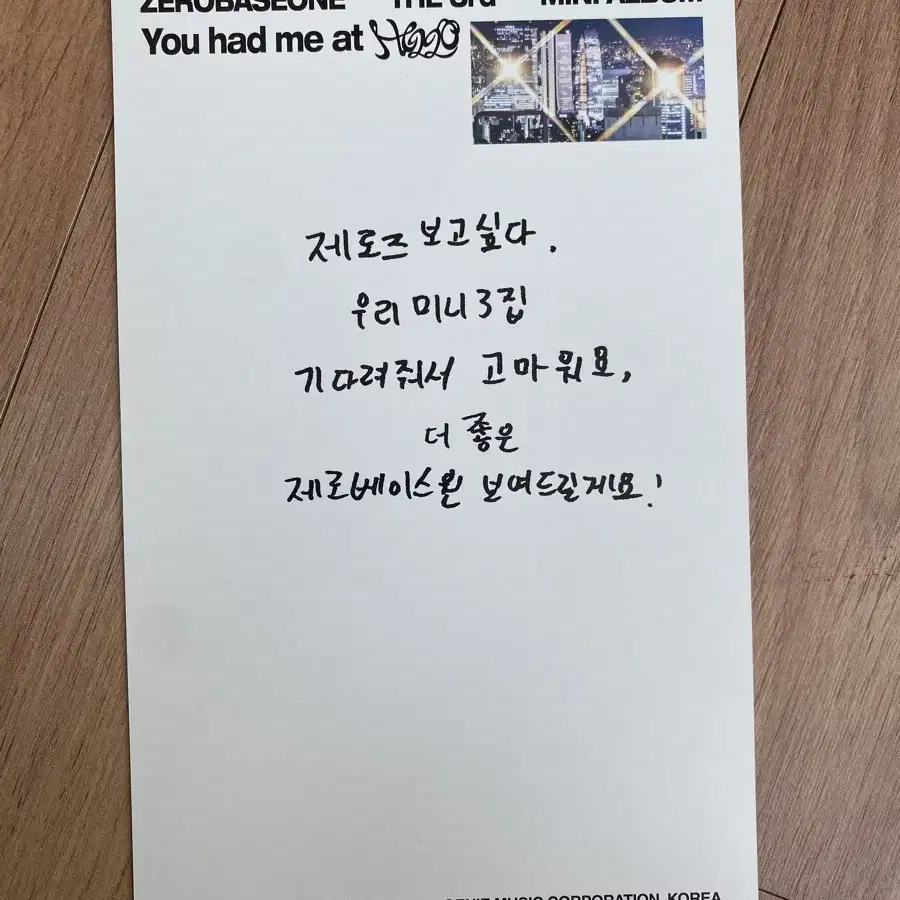 ZEROBASEONE THE 3rd MINI ALBUM
You had me at HELLO
제로즈 보고싶다.
우리 미니 3집
기다려줘서 고마워요,
더 좋은
제로베이스원 보여드릴게요!
MUSIC CORPORATION, KOREA